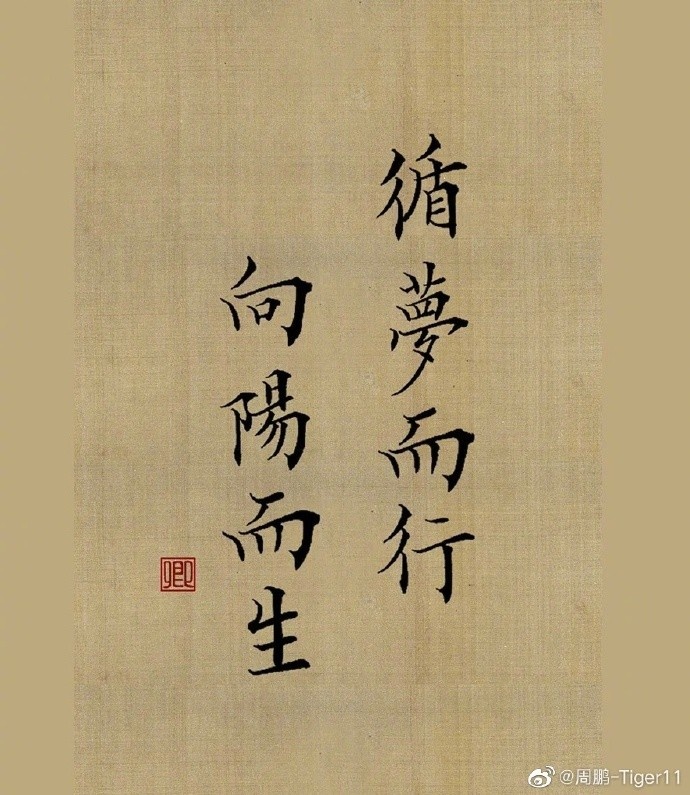 循夢而行
向陽而生
卿
@周鹏-Tiger11